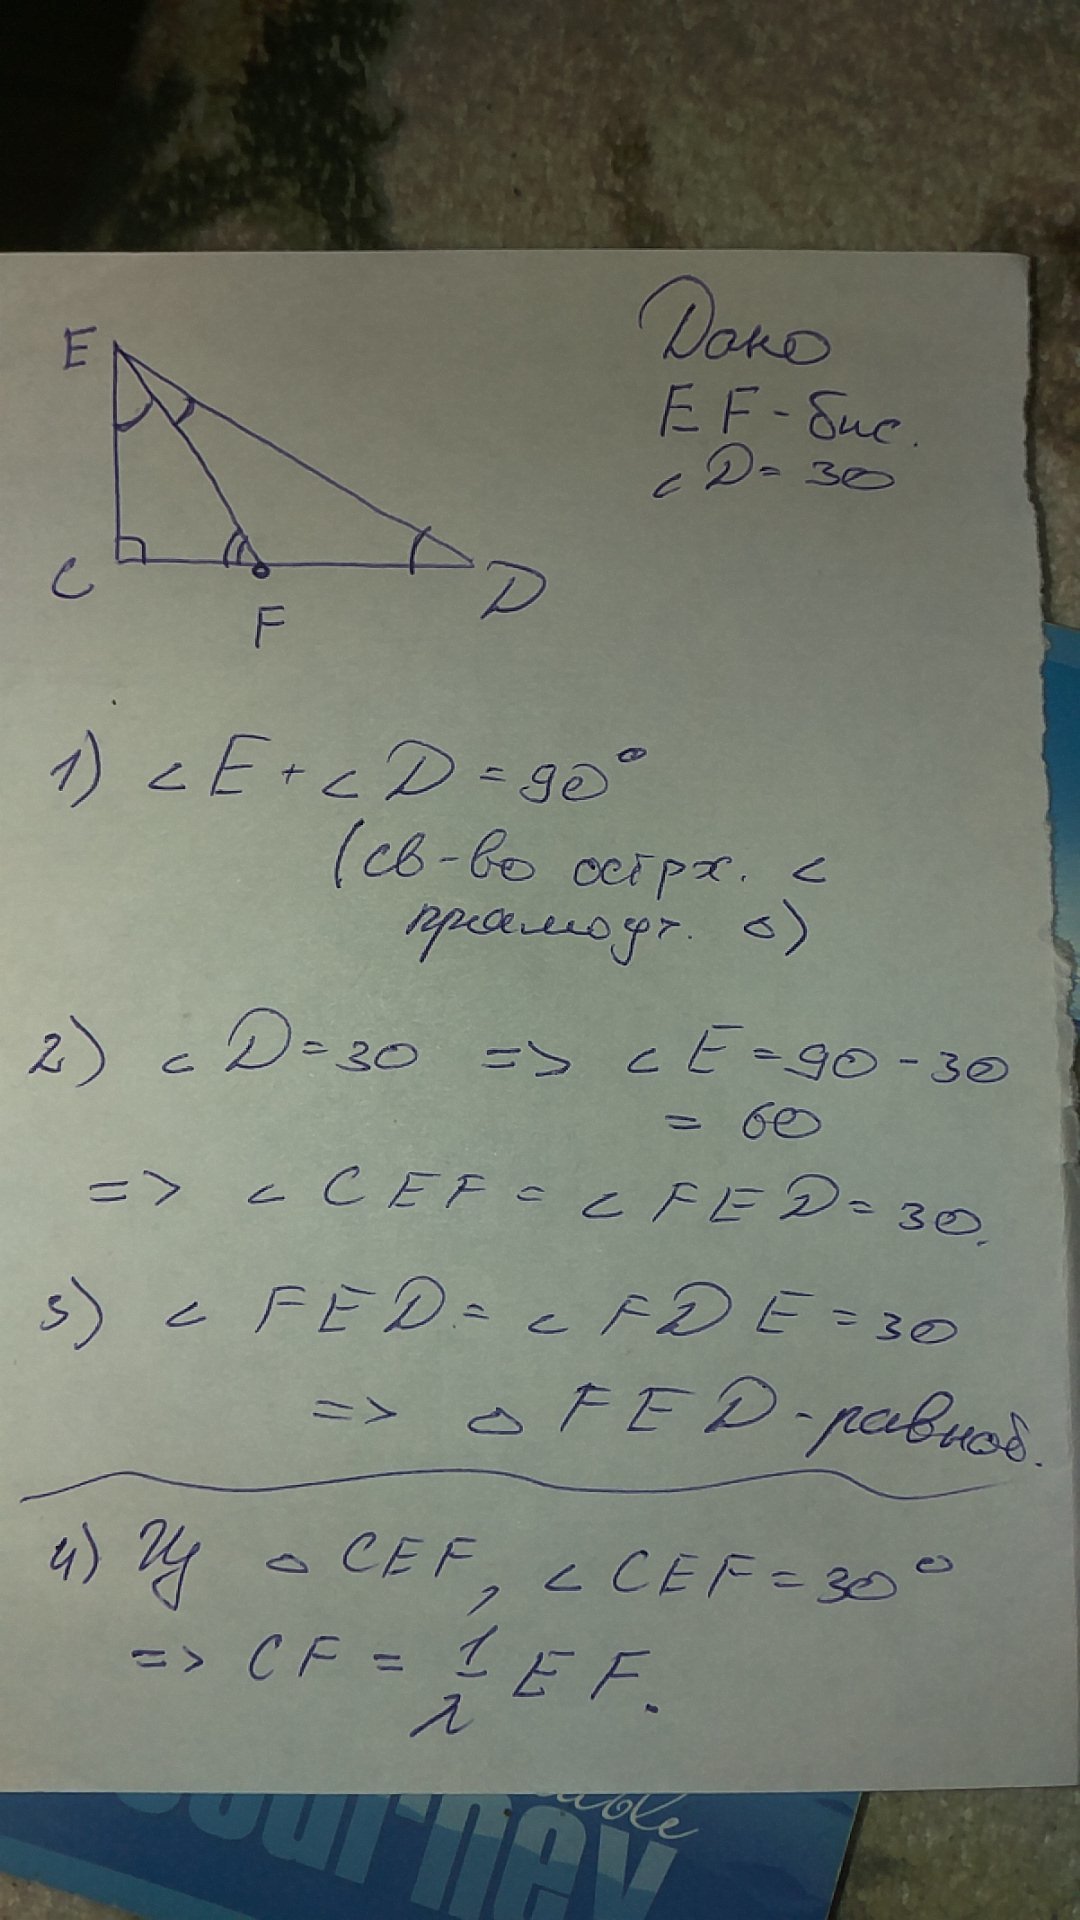 E
C
F
D
Дано
EF - бис.
∠D = 30
1) ∠E + ∠D = 90°
(св-во острх. ∠
прямоуг. △)
2) ∠D = 30 => ∠E = 90 - 30
= 60
=> ∠CEF = ∠FED = 30.
3) ∠FED = ∠FDE = 30
=> △FED - равноб.
4) Из △CEF, ∠CEF = 30°
=> CF = 1/2 EF.